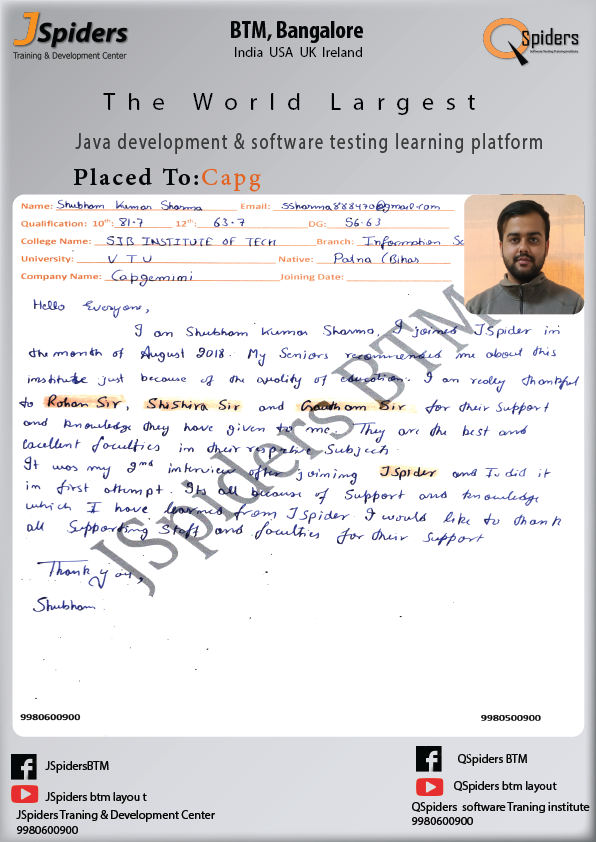 JSpiders
Training & Development Center
BTM, Bangalore
India USA UK Ireland
QSpiders
Software Testing Training Institute
The World Largest
Java development & software testing learning platform
Placed To:Capg
Name: Shubham Kumar Sharma Email: SSharma888470@gmail.com
Qualification: 10th: 81.7 12th: 63.7 DG: 56.63
College Name: SJB INSTITUTE OF TECH Branch: Information Sc
University: V T U Native: Patna (Bihar
Company Name: Capgemini Joining Date:
Hello Everyone,
I am Shubham Kumar Sharma, I joined JSpider in
the month of August 2018. My Seniors recommended me about this
institute just because of the quality of education. I am really thankful
to Rohan Sir, Shishira Sir and Goutham Sir for their support
and knowledge they have given to me. They are the best and
excellent faculties in their respective Subject.
It was my 2nd interview after joining JSpider and I did it
in first attempt. Its all because of Support and knowledge
which I have learned from JSpider. I would like to thank
all Supporting Staff and faculties for their support
Thank you,
Shubham
JSpiders BTM
9980600900 9980500900
JSpidersBTM
JSpiders btm layou t
JSpiders Traning & Development Center
9980600900
QSpiders BTM
QSpiders btm layout
QSpiders software Traning institute
9980600900